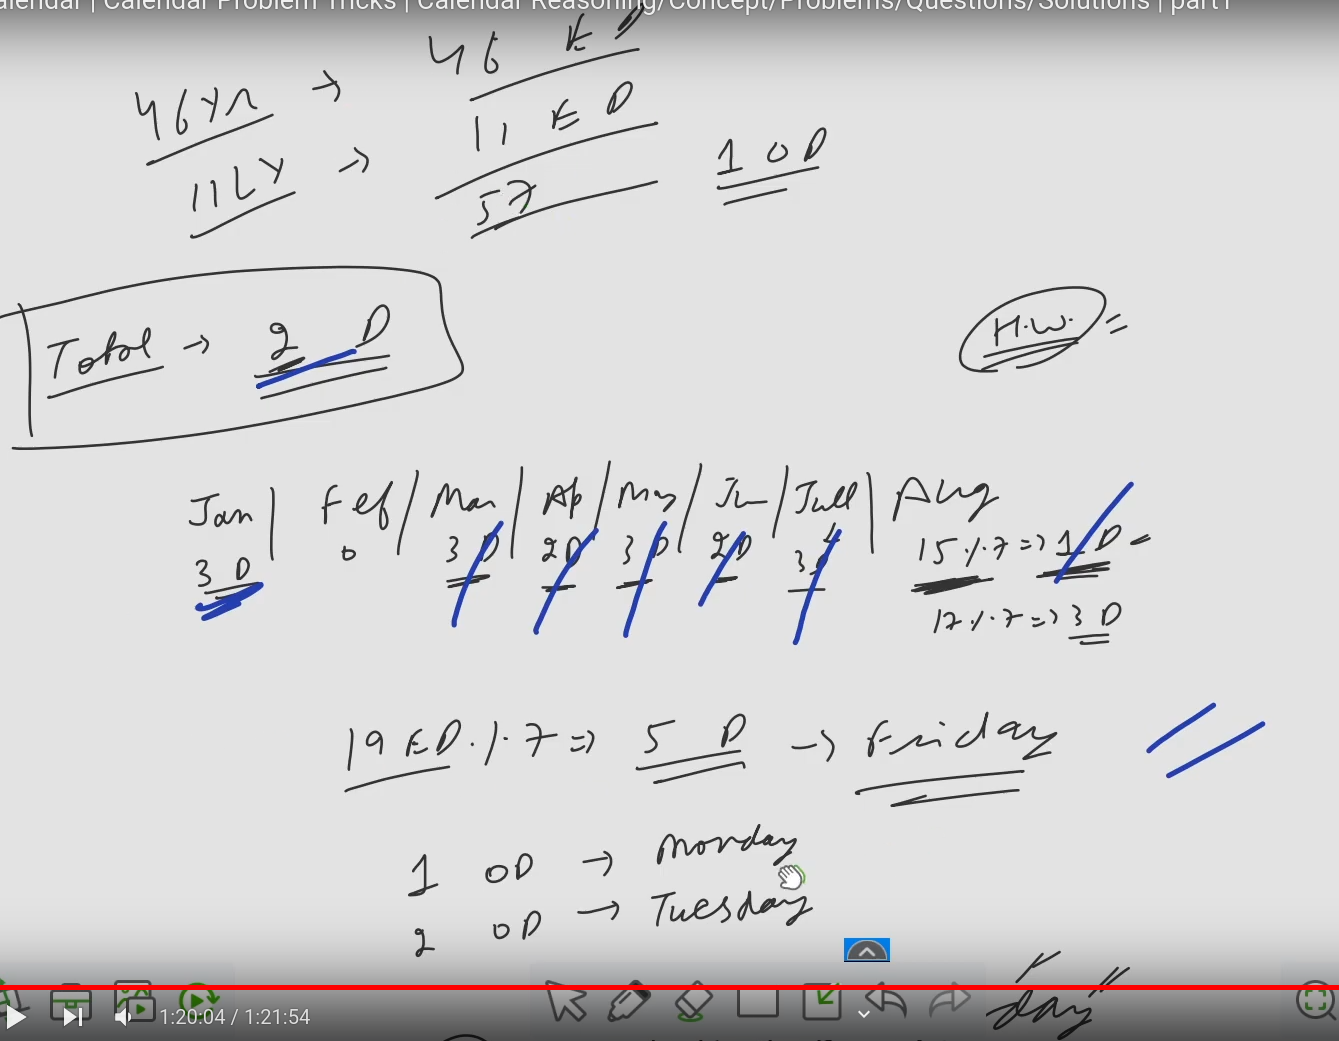 alendar | Calendar Problem Tricks | Calendar Reasoning/Concept/Problems/Questions/Solutions | part1
46yr → 46 ED
11LY → 11 ED
57 1 OD
Total → 2 D
H.W.
Jan | Feb / Mar / Ap / May / Ju / Jull / Aug
3 D 0 3 D 2D 3 D 2D 3D 15 % 7 => 1 D
17 % 7 => 3 D
19 ED % 7 => 5 D → Friday
1 OD → Monday
2 OD → Tuesday
day
1:20:04 / 1:21:54